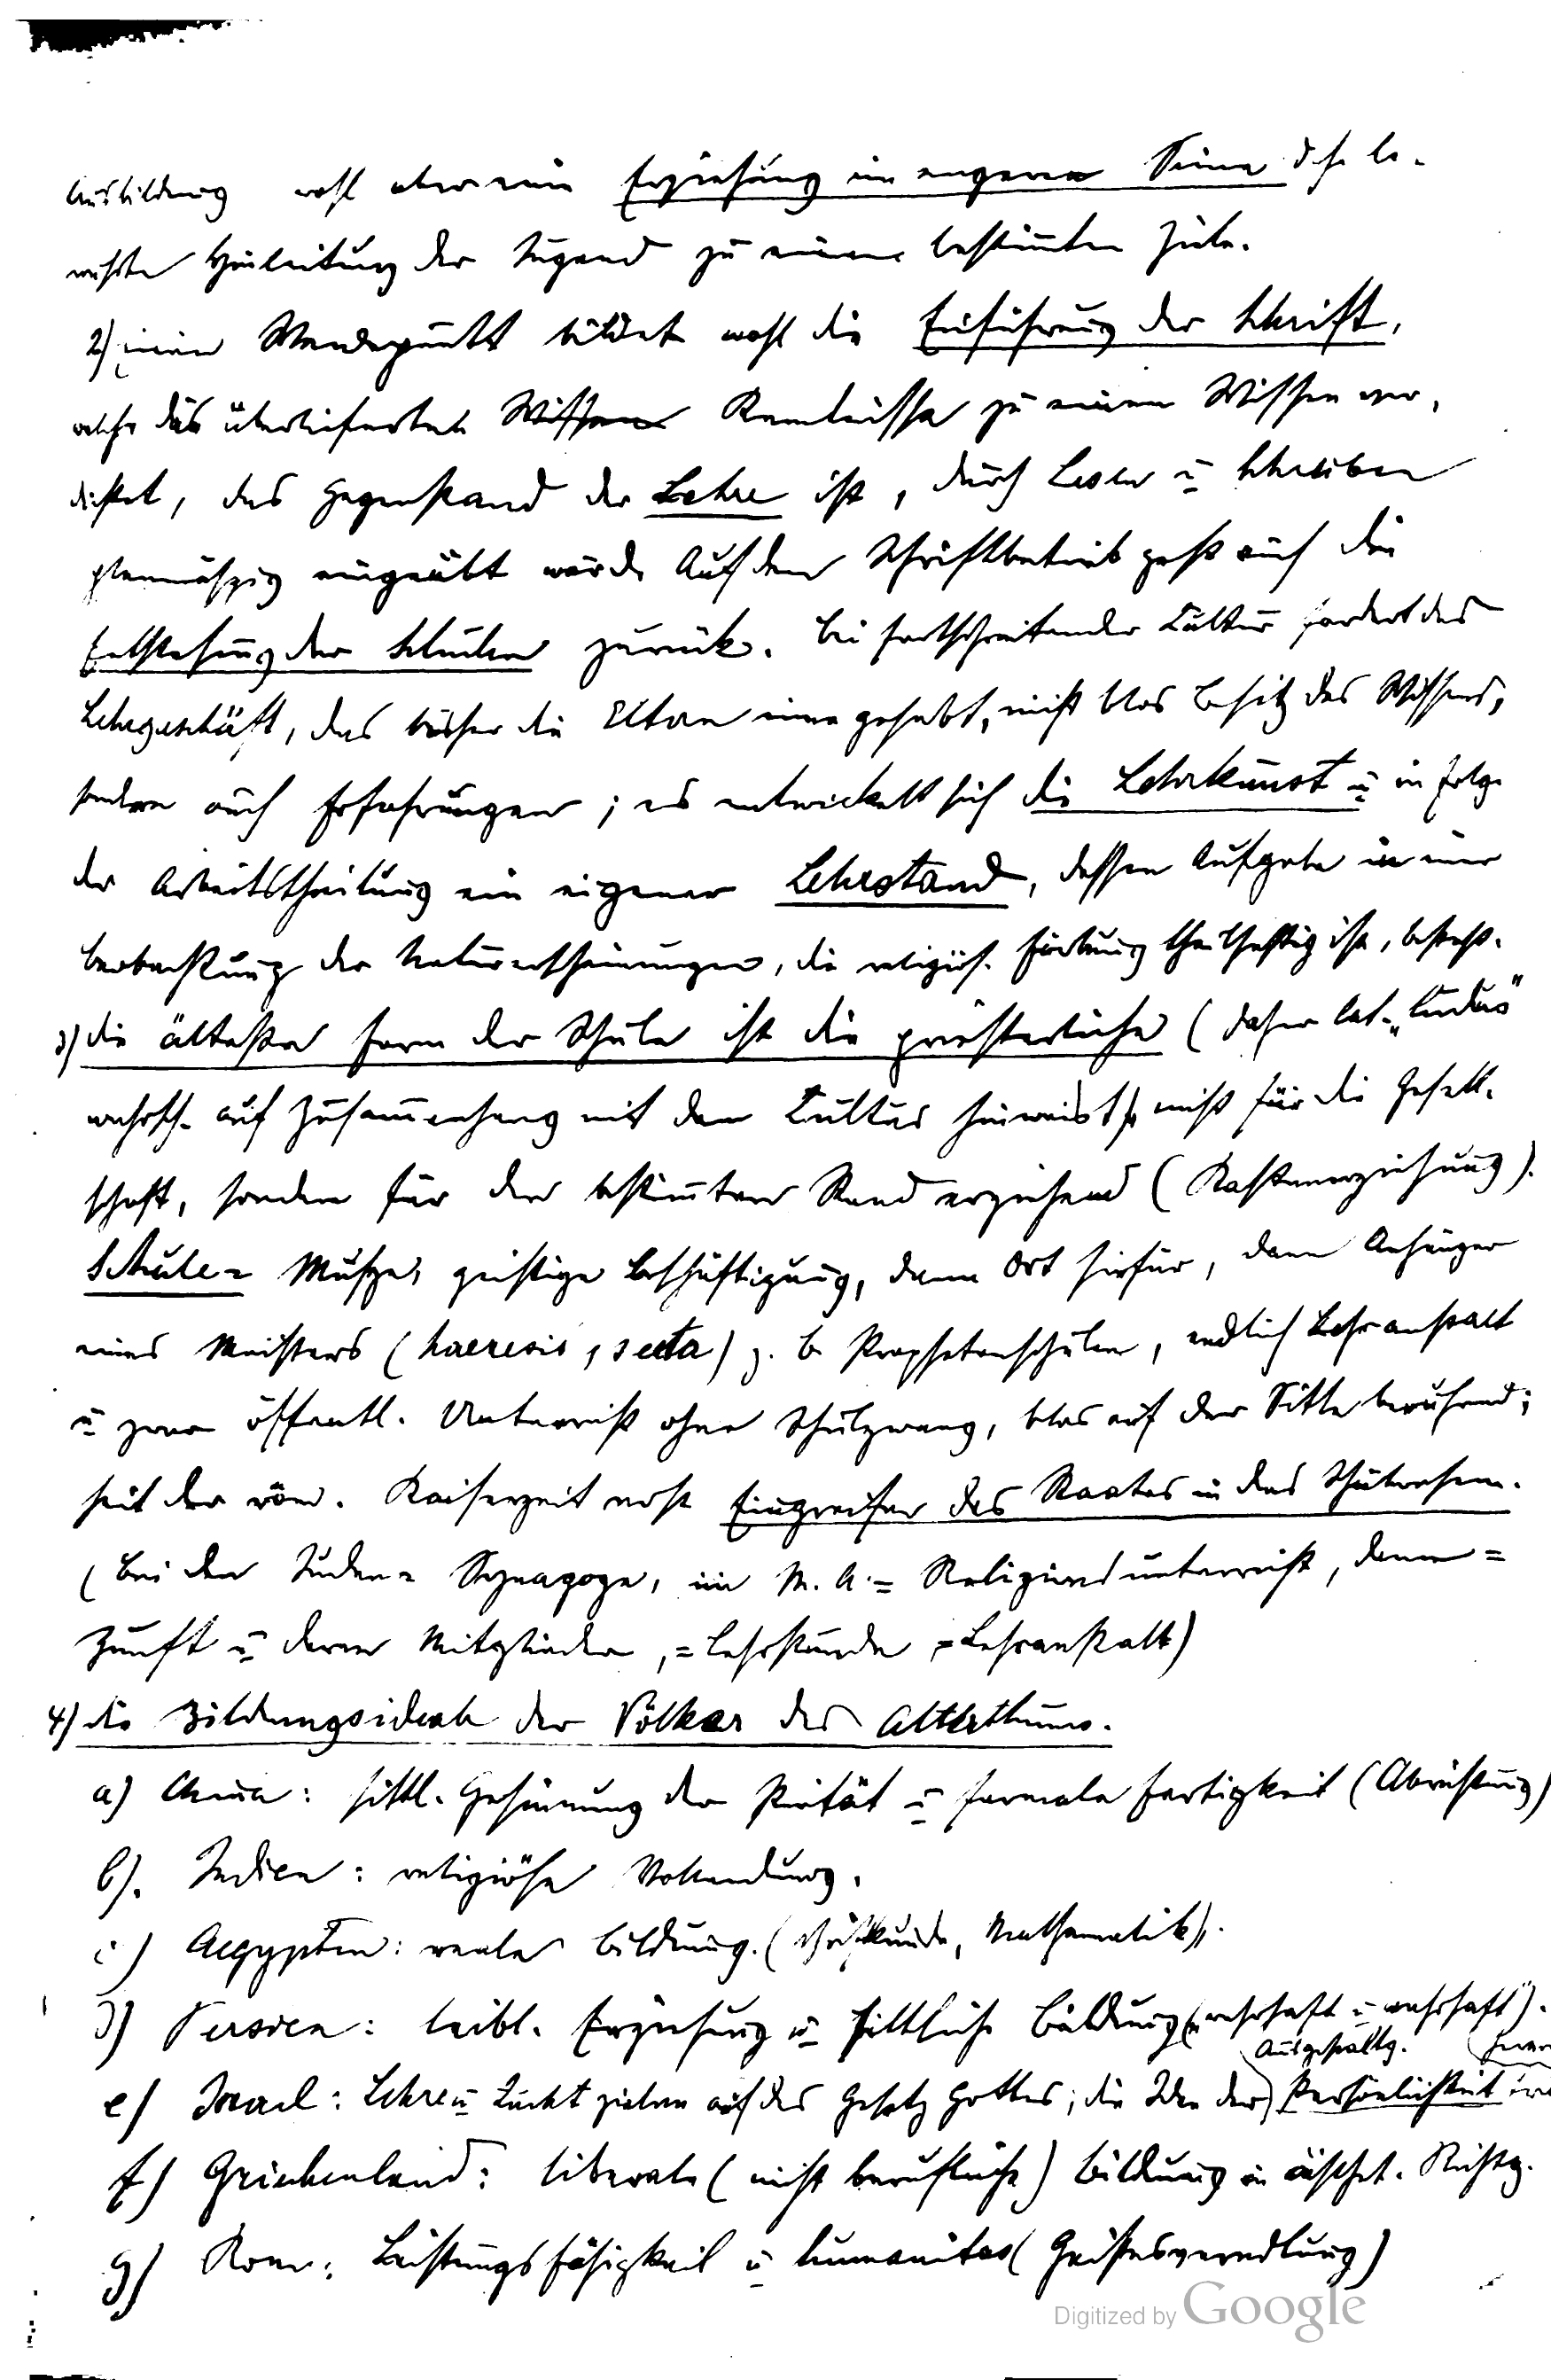 Ausbildung wohl aber eine Erziehung im engeren Sinne d. h. be-
wußte Hinleitung der Jugend zu einem bestimmten Ziele.
2) einen Wendepunkt bildet wohl die Einführung der Schrift,
welche die überlieferten Wissen Kenntnisse zu einem Wissen ver-
dichtet, das Gegenstand der Lehre ist, durch Lesen u Schreiben
planmäßig eingeübt würde Auf den Schriftbetrieb geht auch die
Entstehung der Schulen zurück. Bei fortschreitender Cultur fordert das
Lehrgeschäft, das bisher die Eltern inne gehabt, nicht blos Besitz des Wissens,
sondern auch Erfahrungen; es entwickelt sich die Lehrkunst u in Folge
der Arbeitstheilung ein eigener Lehrstand, dessen Aufgabe in einer
Beobachtung der Naturerscheinungen, die religiös. Färbung theilhaftig ist, besteht.
3) die älteste Form der Schule ist die priesterliche (daher lat. „Ludus"
wahrsch. auf Zusammenhang mit dem Cultus hinweist) nicht für die Gesell-
schaft, sondern für den bestimmten Stand erziehend (Kastenerziehung).
Schule = Muße, geistige Beschäftigung, dann Ort hiefür, dann Anhänger
eines Meisters (haeresis, secta) z. B. Prophetenschulen, endlich Lehranstalt
u zwar öffentl. Unterricht ohne Schulzwang, blos auf der Sitte beruhend;
seit der röm. Kaiserzeit erst Eingreifen des Staates in das Schulwesen.
(Bei den Juden = Synagoge, im M. A. = Religionsunterricht, dann =
Zunft u deren Mitglieder, = Lehrstunde, = Lehranstalt)
4) die Bildungsideale der Völker des Alterthums.
a) China: sittl. Gesinnung der Pietät u formale Fertigkeit (Abrichtung)
b). Indien: religiöse Vollendung.
c) Aegypten: reale Bildung. (Mathematik).
d) Persien: leibl. Erziehung u sittliche Bildung („wehrhaft u wahrhaft").
Ausgestaltg.
e) Israel: Lehre u Zucht zielen auf das Gesetz Gottes; die Idee der Persönlichkeit
f) Griechenland: liberale (nicht berufliche) Bildung in ästhet. Richtg.
g) Rom: Leistungsfähigkeit u humanitas (Geistesveredlung)
Digitized by Google